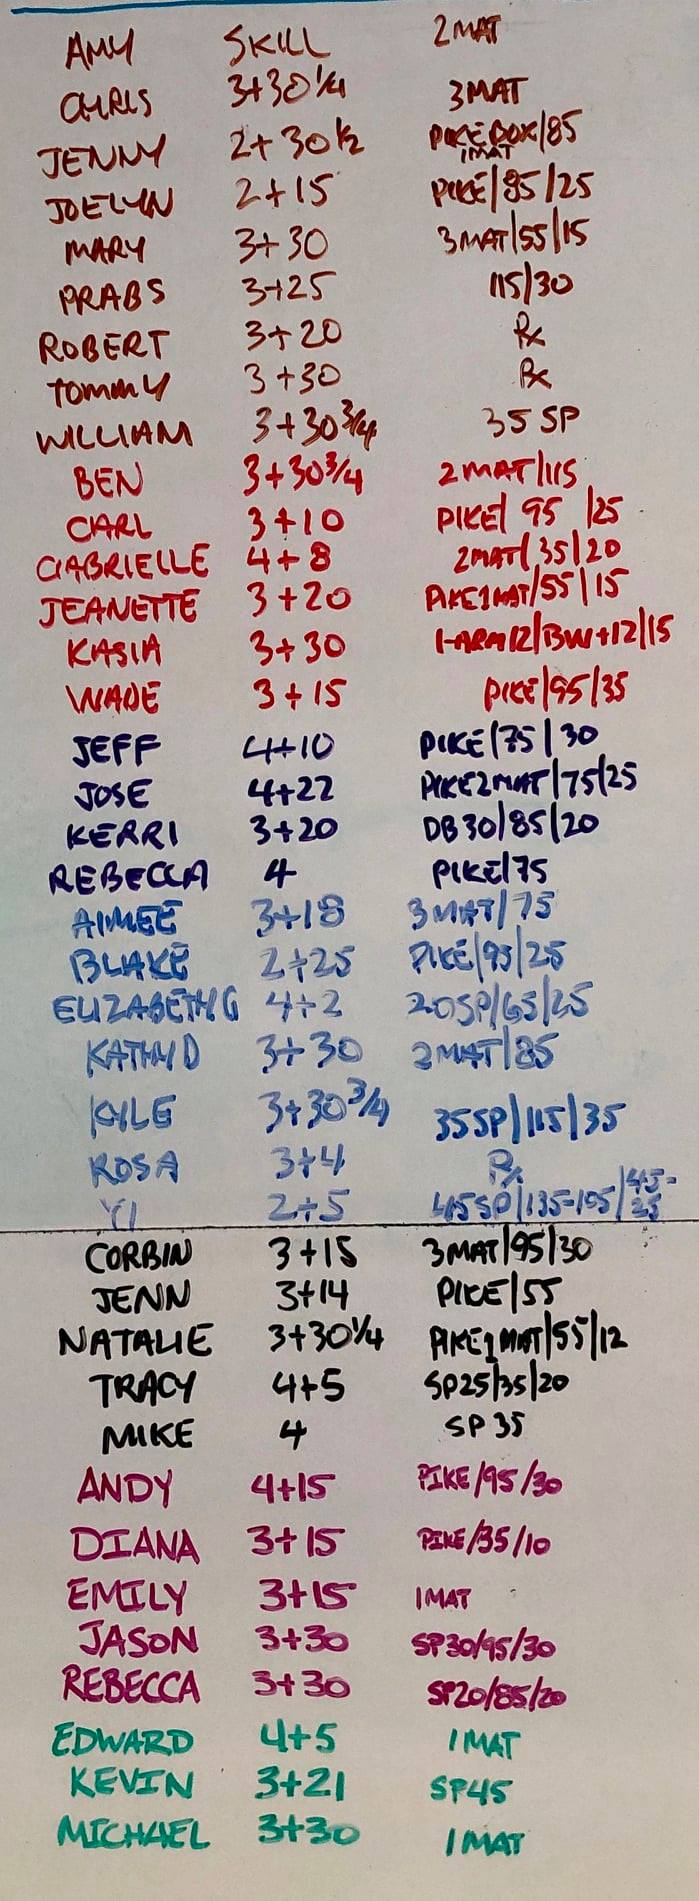 AMY SKILL 2MAT
CHRIS 3+30 1/4 3MAT
JENNY 2+30 1/2 PIKE BOX/85
1MAT
JOELYN 2+15 PIKE/85/25
MARY 3+30 3MAT/55/15
PRABS 3+25 115/30
ROBERT 3+20 Rx
TOMMY 3+30 Rx
WILLIAM 3+30 3/4 35 SP
BEN 3+30 3/4 2MAT/115
CARL 3+10 PIKE/ 95 /25
GABRIELLE 4+8 2MAT/35/20
JEANETTE 3+20 PIKE1MAT/55/15
KASIA 3+30 1-ARM12/BW+12/15
WADE 3+15 PIKE/95/35
JEFF 4+10 PIKE/75/30
JOSE 4+22 PIKE2MAT/75/25
KERRI 3+20 DB30/85/20
REBECCA 4 PIKE/75
AIMEE 3+18 3MAT/75
BLAKE 2+25 PIKE/95/25
ELIZABETH G 4+2 20SP/65/25
KATHY D 3+30 2MAT/85
KYLE 3+30 3/4 35SP/115/35
ROSA 3+4 Rx
YI 2+5 45SP/135-105/45-
CORBIN 3+15 3MAT/95/30
JENN 3+14 PIKE/55
NATALIE 3+30 1/4 PIKE1MAT/55/12
TRACY 4+5 SP25/35/20
MIKE 4 SP 35
ANDY 4+15 PIKE/95/30
DIANA 3+15 PIKE/35/10
EMILY 3+15 1MAT
JASON 3+30 SP30/95/30
REBECCA 3+30 SP20/85/20
EDWARD 4+5 1MAT
KEVIN 3+21 SP45
MICHAEL 3+30 1MAT